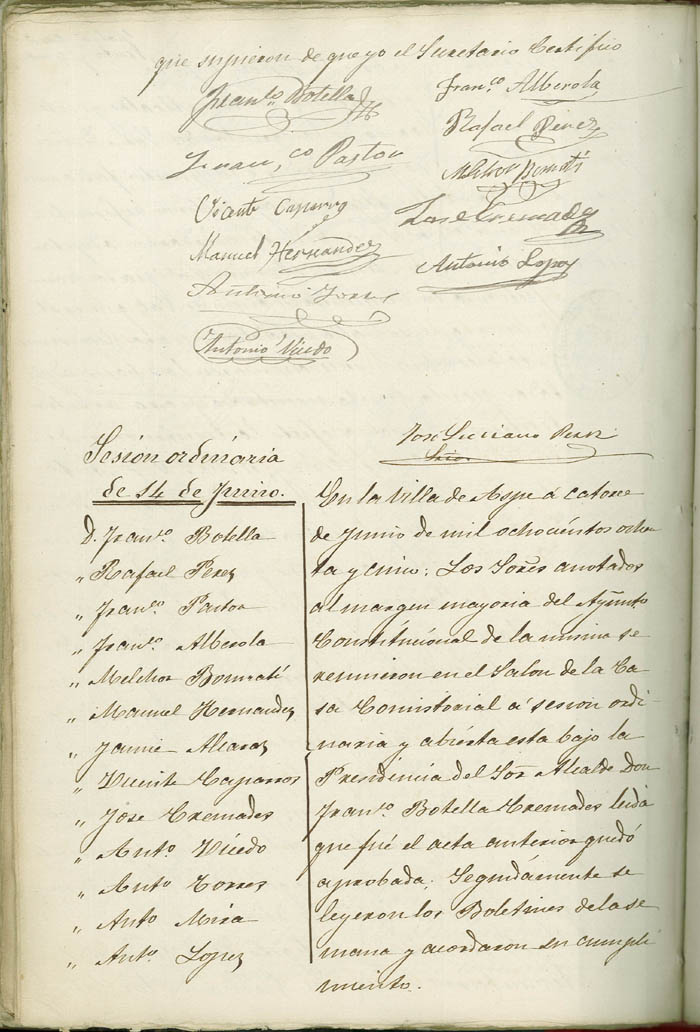 que supieron de que yo el Secretario Certifico
Franco. Botella
Franco. Alberola
Rafael Perez
Franco Pastor
Melchor Bonmatí
Vicente Caparros
Jose Cremades
Manuel Hernandez
Antonio Lopez
Antonio Torres
Antonio Vicedo
José Luciano Perez
Srio.
Sesion ordinaria
de 14 de Junio.
D. Franco. Botella
" Rafael Perez
" Franco. Pastor
" Franco. Alberola
" Melchor Bonmatí
" Manuel Hernandez
" Jaime Alcaraz
" Vicente Caparros
" Jose Cremades
" Anto. Vicedo
" Anto. Torres
" Anto. Mira
" Anto. Lopez
En la Villa de Aspe á catorce
de Junio de mil ochocientos ochen
ta y cinco: Los Sores. anotados
al margen mayoria del Ayunto
Constitucional de la misma se
reunieron en el Salon de la Ca
sa Consistorial á sesion ordi
naria y abierta esta bajo la
Presidencia del Sor. Alcalde Don
Franco. Botella Cremades leida
que fué el acta anterior quedó
aprobada; Segundamente se
leyeron los Boletines de la se
mana y acordaron su cumpli
miento.